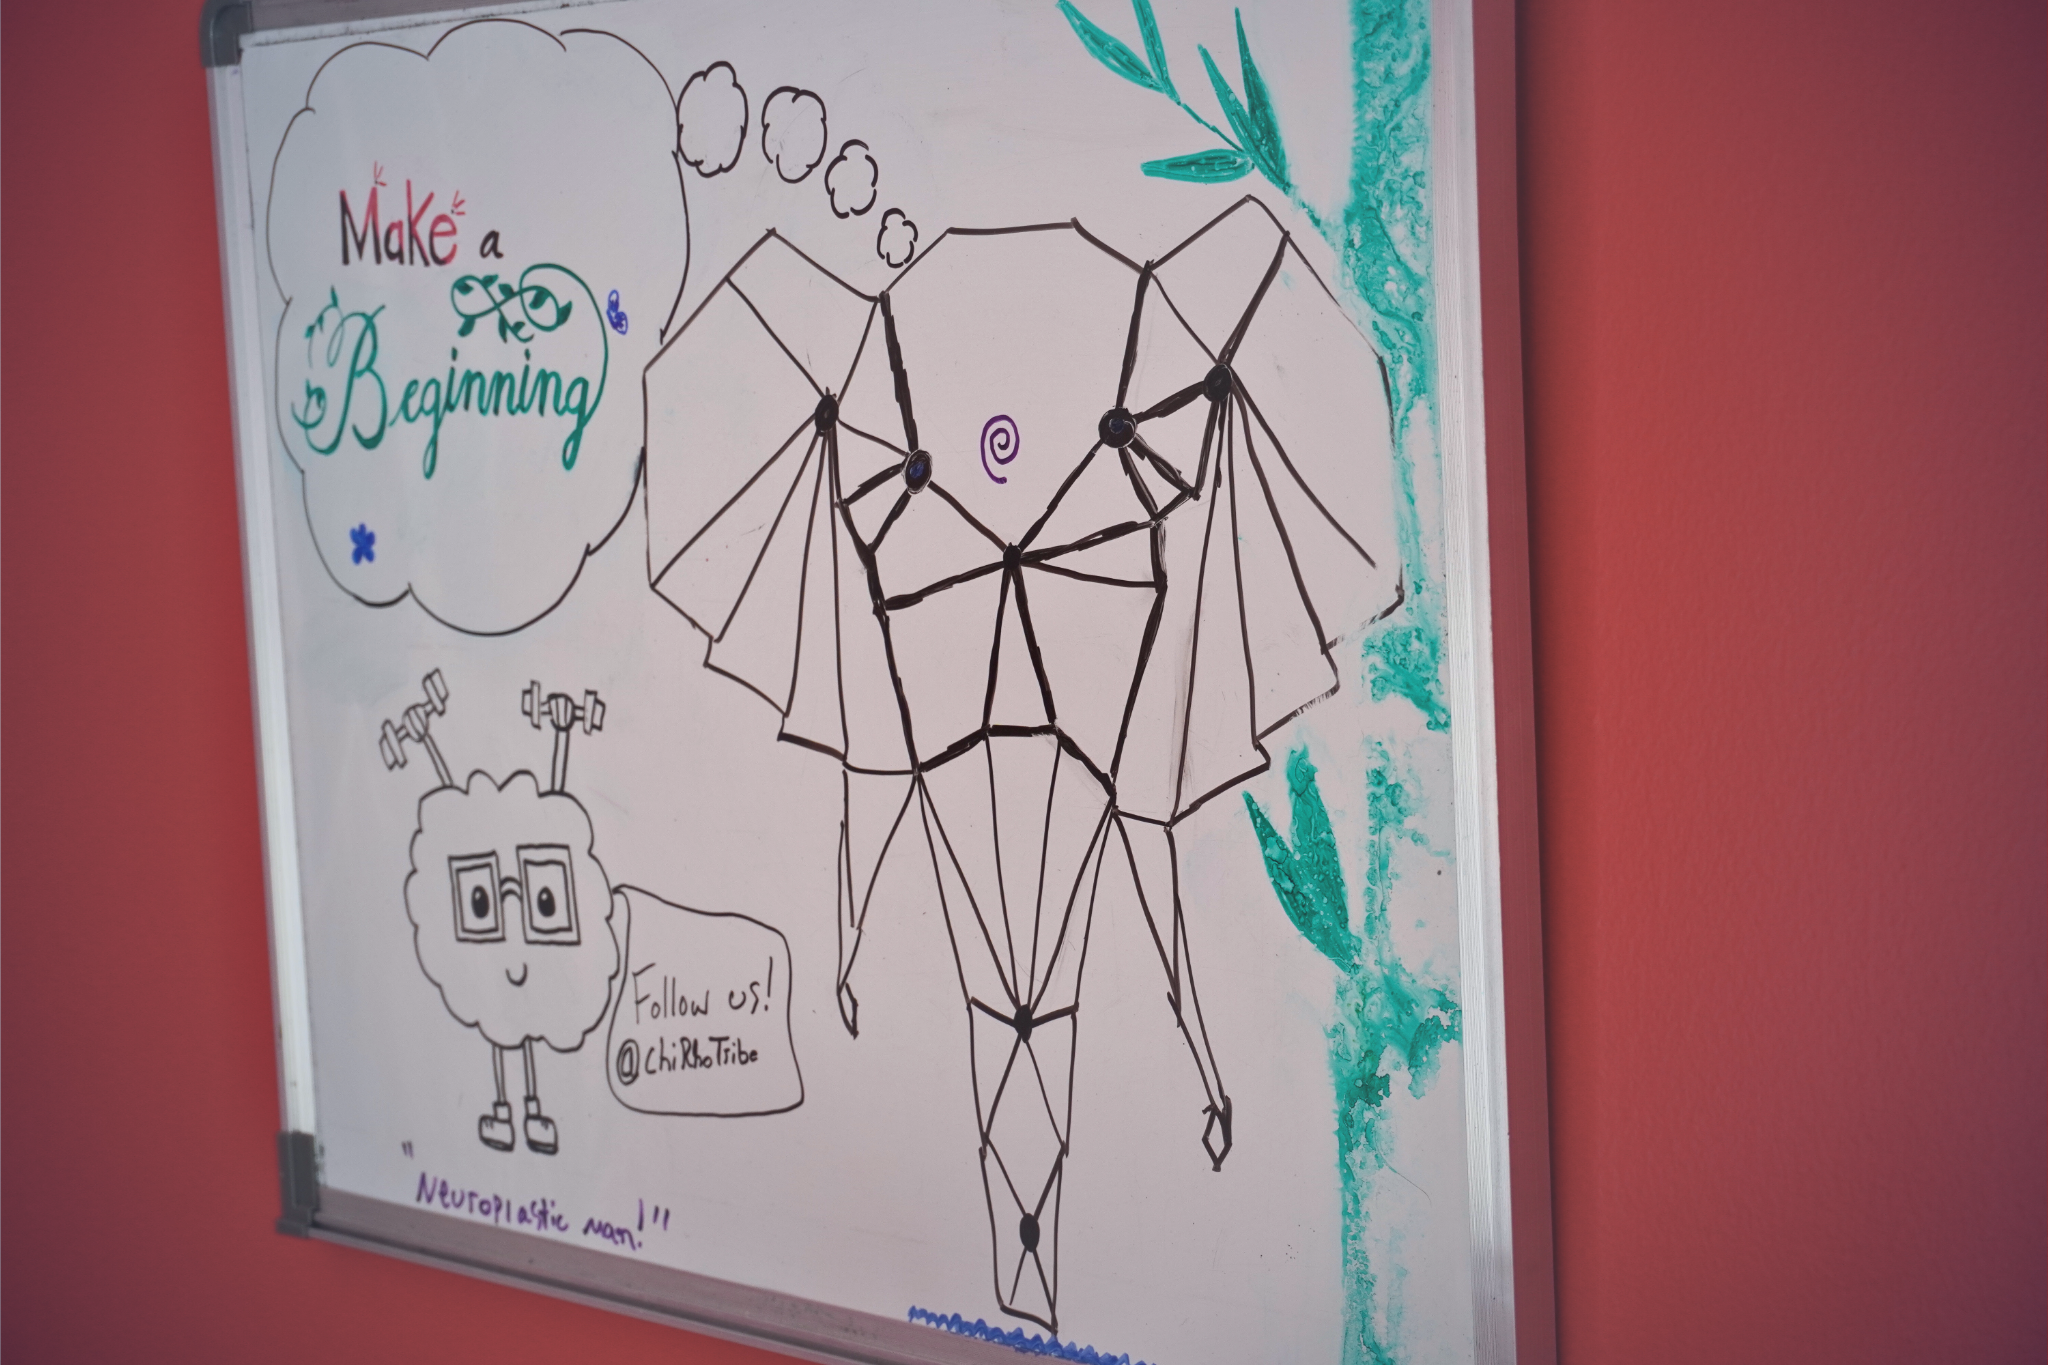 Make a
Beginning
Follow us!
@ChiRhoTribe
"Neuroplastic man!"